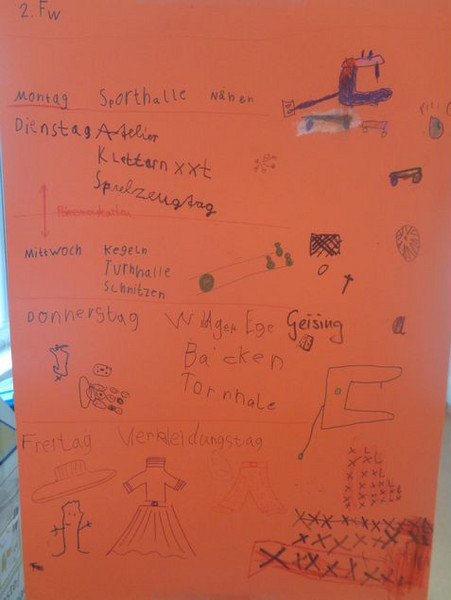 2. FW
Montag Sporthalle Nähen
Dienstag Atelier
Klettern xxt
Spielzeugtag
Mittwoch Kegeln
Turnhalle
Schnitzen
Donnerstag Geising
Backen
Tornhale
Freitag Verkleidungstag